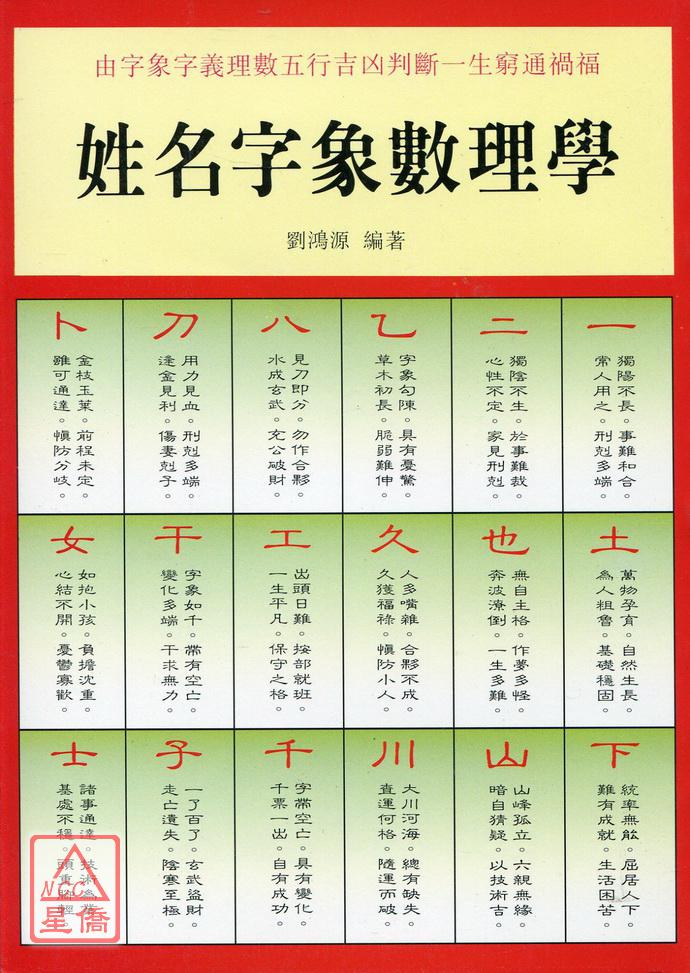 由字象字義理數五行吉凶判斷一生窮通禍福
姓名字象數理學
劉鴻源 編著
一
獨陽不長。事難和合。
常人用之。刑剋多端。
二
獨陰不生。於事難裁。
心性不定。家見刑剋。
乙
字象勾陳。具有憂驚。
草木初長。脆弱難伸。
八
見刀即分。勿作合夥。
水成玄武。充公破財。
刀
用力見血。刑剋多端。
逢金見利。傷妻剋子。
卜
金枝玉葉。前程未定。
雖可通達。慎防分岐。
土
萬物孕育。自然生長。
為人粗魯。基礎穩固。
也
無自主格。作夢多怪。
奔波潦倒。一生多難。
久
人多嘴雜。合夥不成。
久獲福祿。慎防小人。
工
出頭日難。按部就班。
一生平凡。保守之格。
干
字象如千。帶有空亡。
變化多端。干求無力。
女
如抱小孩。負擔沈重。
心結不開。憂鬱寡歡。
下
統率無能。屈居人下。
難有成就。生活困苦。
山
山峰孤立。六親無緣。
暗自猜疑。以技術吉。
川
大川河海。總有缺失。
查運何格。隨運而破。
千
字帶空亡。具有變化。
千票一出。自有成功。
子
一了百了。玄武盜財。
走亡遺失。陰寒至極。
士
諸事通達。技術為常。
基處不穩。頭重腳輕。
NCC
星僑